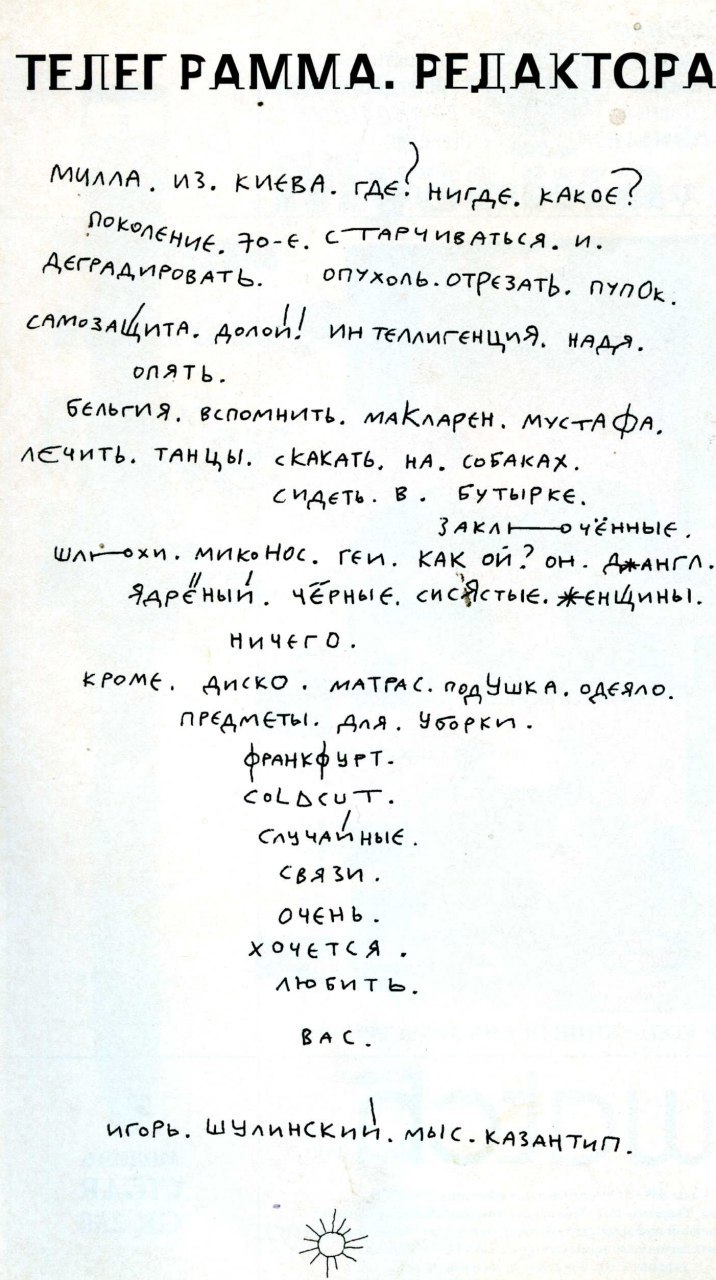 ТЕЛЕГРАММА. РЕДАКТОРА
МИЛЛА. ИЗ. КИЕВА. ГДЕ? НИГДЕ. КАКОЕ?
ПОКОЛЕНИЕ. 70-Е. СТАРЧИВАТЬСЯ. И.
ДЕГРАДИРОВАТЬ. ОПУХОЛЬ. ОТРЕЗАТЬ. ПУПОК.
САМОЗАЩИТА. ДОЛОЙ! ИНТЕЛЛИГЕНЦИЯ. НАДЯ.
ОПЯТЬ.
БЕЛЬГИЯ. ВСПОМНИТЬ. МАКЛАРЕН. МУСТАФА.
ЛЕЧИТЬ. ТАНЦЫ. СКАКАТЬ. НА. СОБАКАХ.
СИДЕТЬ. В. БУТЫРКЕ.
ЗАКЛЮЧЁННЫЕ.
ШЛЮХИ. МИКОНОС. ГЕИ. КАКОЙ? ОН. ДЖАНГЛ.
ЯДРЁНЫЙ. ЧЁРНЫЕ. СИСЯСТЫЕ. ЖЕНЩИНЫ.
НИЧЕГО.
КРОМЕ. ДИСКО. МАТРАС. ПОДУШКА. ОДЕЯЛО.
ПРЕДМЕТЫ. ДЛЯ. УБОРКИ.
ФРАНКФУРТ.
COLDCUT.
СЛУЧАЙНЫЕ.
СВЯЗИ.
ОЧЕНЬ.
ХОЧЕТСЯ.
ЛЮБИТЬ.
ВАС.
ИГОРЬ. ШУЛИНСКИЙ. МЫС. КАЗАНТИП.